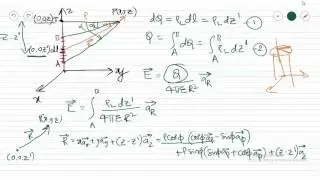 z
P(ρ,φ,z)
(0,0,z')
z-z'
B
A
x
xy
dQ = ρ_L dl = ρ_L dz' ①
Q = ∫_A^B dQ = ∫_A^B ρ_L dz' ②
E = Q / 4πER² a_R
E = ∫_A^B ρ_L dz' / 4πER² a_R
R
(0,0,z')
R = x a_x + y a_y + (z-z') a_z = ρcosφ (cosφ a_ρ - sinφ a_φ)
+ ρ sinφ (sinφ a_ρ + cosφ a_φ) + (z-z') a_z